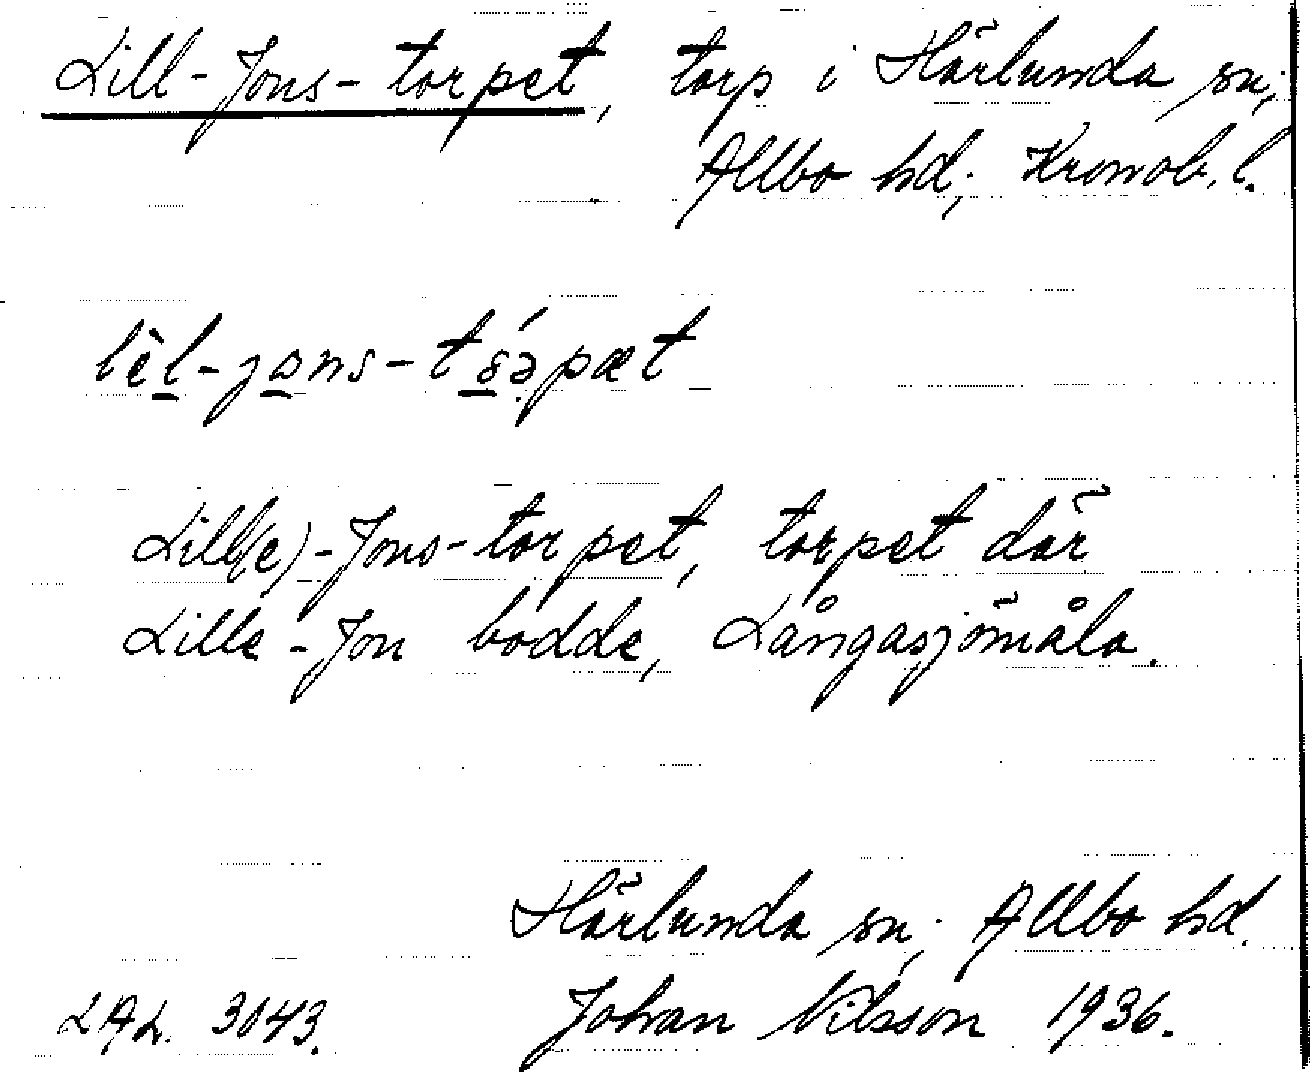 Lill-Jons-torpet, torp i Härlunda sn;
Allbo hd; Kronob. l.
lèl-jons-tǿəpæt
Lill(e)-Jons-torpet, torpet där
Lille-Jon bodde, Långasjömåla.
Härlunda sn; Allbo hd.
LAL. 3043. Johan Nilsson 1936.